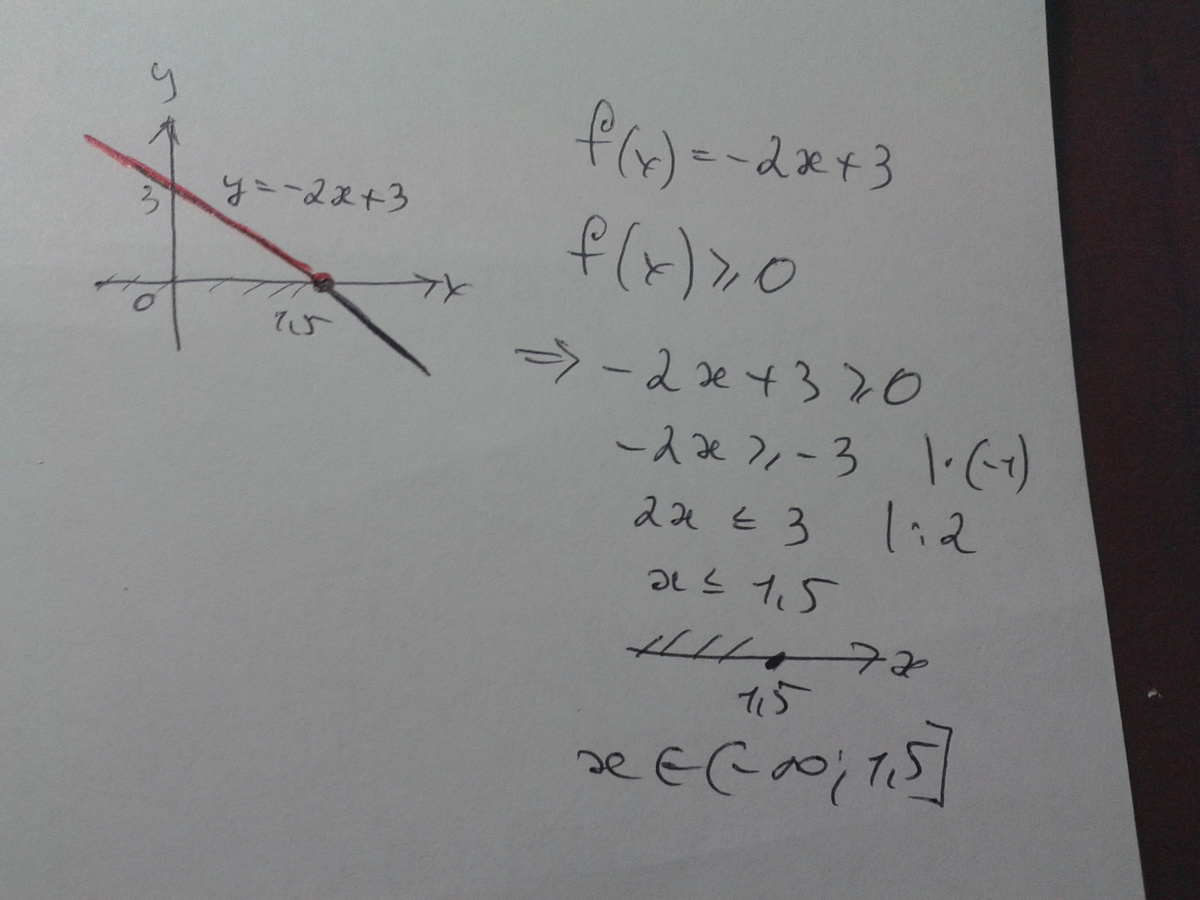 y
3
y=-2x+3
0
x
1,5
f(x)=-2x+3
f(x)⩾0
⇒ -2x+3⩾0
-2x⩾-3 |·(-1)
2x≤3 |:2
x≤1,5
x
1,5
x∈(-∞;1,5]